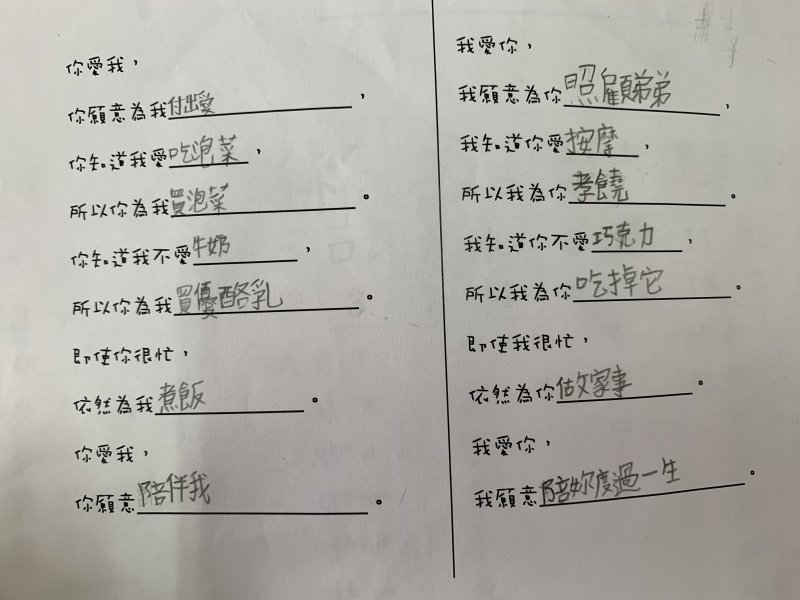 你愛我，
你願意為我付出愛，
你知道我愛吃泡菜，
所以你為我買泡菜。
你知道我不愛牛奶，
所以你為我買優酪乳。
即使你很忙，
依然為我煮飯。
你愛我，
你願意陪伴我。
我愛你，
我願意為你照顧弟弟，
我知道你愛按摩，
所以我為你孝饒。
我知道你不愛巧克力，
所以我為你吃掉它。
即使我很忙，
依然為你做家事。
我愛你，
我願意陪妳度過一生。